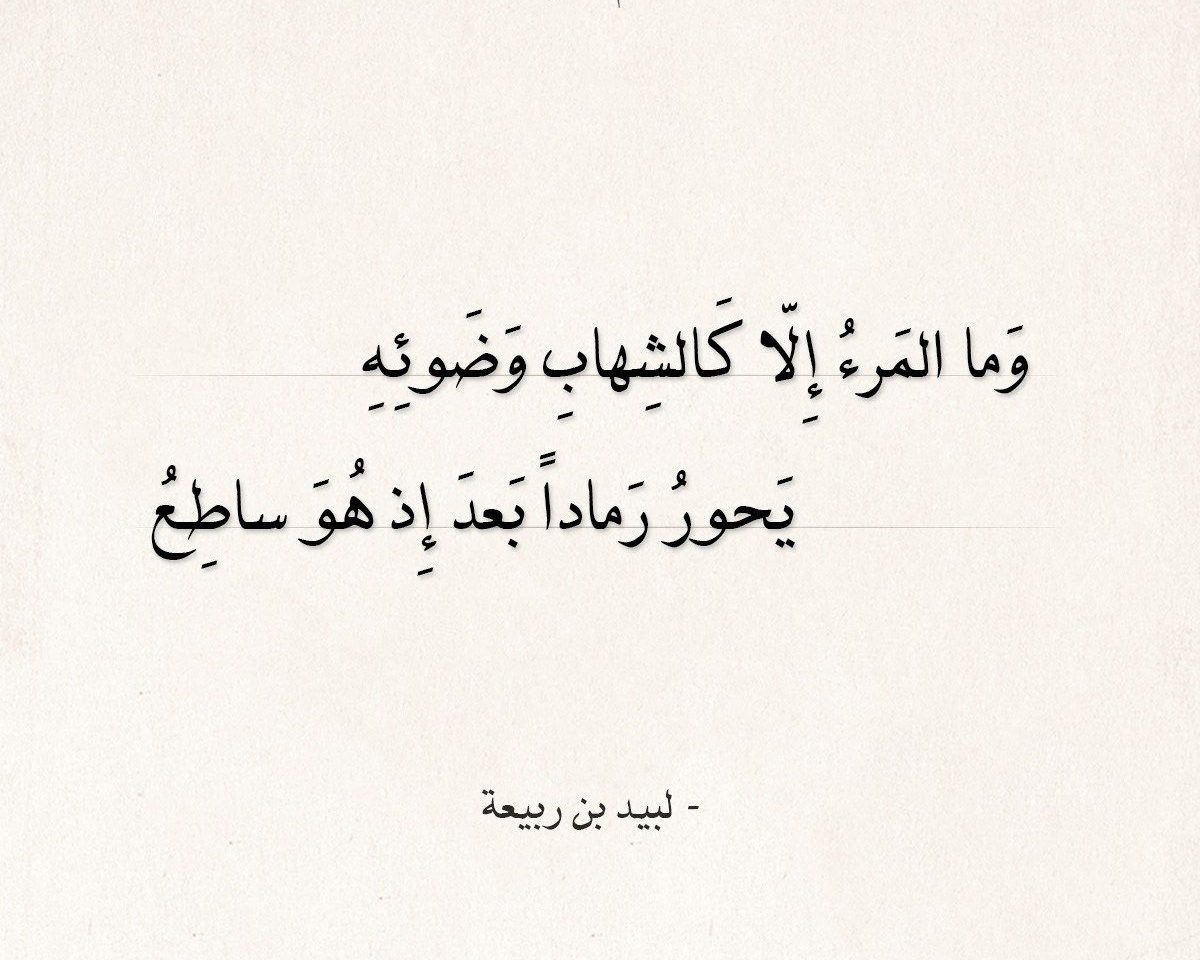 وَما المَرءُ إِلّا كَالشِهابِ وَضَوئِهِ
يَحورُ رَماداً بَعدَ إِذ هُوَ ساطِعُ
- لبيد بن ربيعة